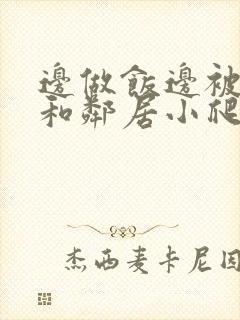 邊做飯邊被
和鄰居小爬
杰西麦卡尼因